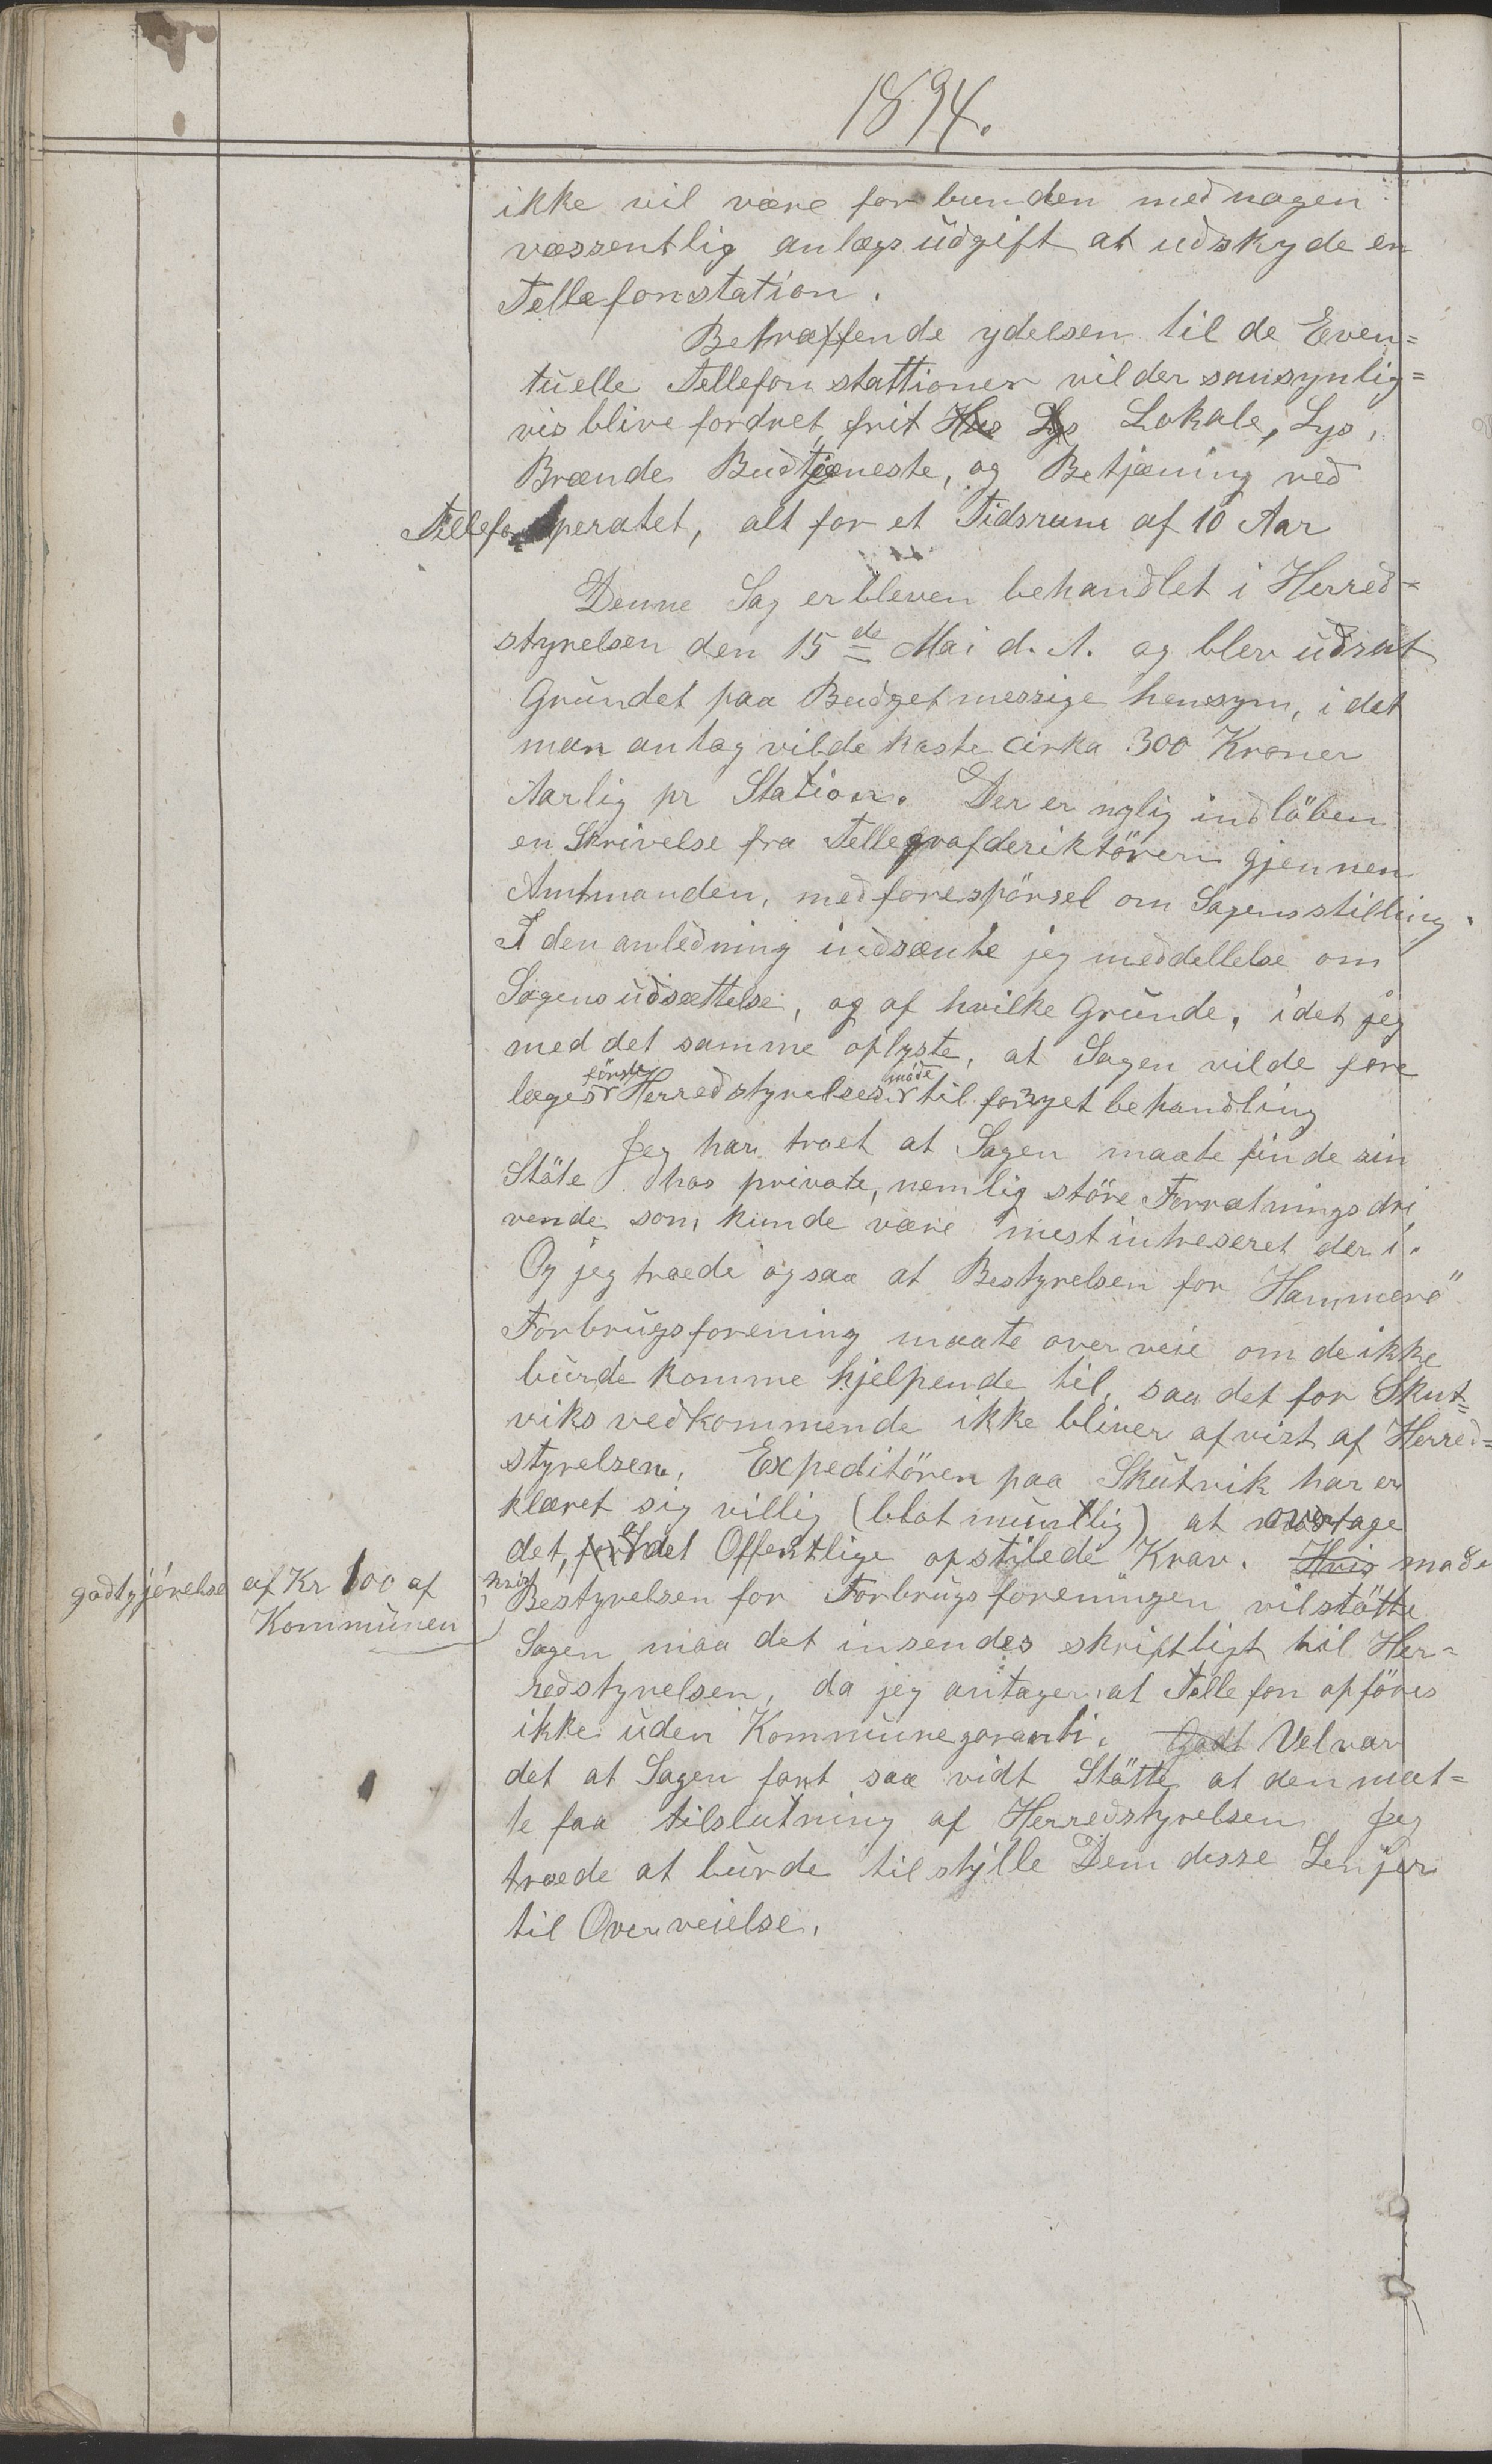 1894.
ikke vil være forbunden med nogen
væssentlig anlægs üdgift at udskyde en
Tellefonstation.
Betræffende ydelsen til de Even=
tuelle Tellefon stattioner vil der sansynlig=
vis blive fordret, frit Hus Lys Lokale, Lys,
Brænde Budtjeneste, og Betjæning ved
Tellefonaperatet, alt for et Tidsrum af 10 Aar
Denne Sag er bleven behandlet i Herred=
styrelsen den 15de Mai d. A. og blev üdsat
Gründet paa Budgetmessige hensyn, i det
man antog vilde koste cirka 300 Kroner
Aarlig pr Station. Der er nylig indlöben
en Skrivelse fra Tellegrafderiktören gjennem
Amtmanden, med forespörsel om Sagens stilling.
I den anledning indsænte jeg meddellelse om
Sagens üdsættelse, og af hvilke Gründe, idet jeg
med det samme oplyste, at Sagen vilde fore
læges förste Herredstyrelses möde til fornyet behandling
Jeg har troet at Sagen maate finde sin
Stöte hos private, nemlig störe Forrætningsdri
vende som kunde være mest intreseret der i.
Og jeg troede ogsaa at Bestyrelsen for Hammerö
Forbrugsforening maate over veie om de ikke
burde komme hjelpende til, saa det for Skut=
viks vedkommende ikke bliver afvist af Herred=
styrelsen. Expeditören paa Skütvik har er
klæret sig villig (blot müntlig) at overtage
det, for af det Offentlige opstilede Krav. Hvis mod
godtgjörelse af Kr 100 af
Kommünen
hvis Bestyrelsen for Forbrugsforeningen vil stötte
Sagen maa det insendes skriftligt til Her=
redstyrelsen, da jeg antager at Tellefon opföres
ikke uden Kommunegaranti. Godt Vel var
det at Sagen fant saa vidt Stötte at den maat=
te faa tilslutning af Herredstyrelsen Jeg
troede at burde tilstille Dem desse Linjer
til Overveielse.